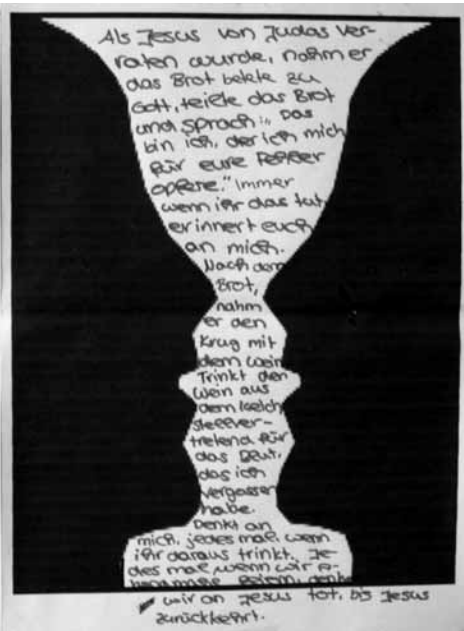 Als Jesus von Judas Ver-
raten wurde, nahm er
das Brot betete zu
Gott, teilte das Brot
und sprach: „Das
bin ich, der ich mich
für eure Fehler
opfere." Immer
wenn ihr das tut,
erinnert euch
an mich.
Nach dem
Brot,
nahm
er den
Krug mit
dem Wein
Trinkt den
Wein aus
dem Kelch
stellver-
tretend für
das Blut,
das ich
vergossen
habe.
Denkt an
mich, jedes mal wenn
ihr daraus trinkt. Je-
des mal wenn wir A-
wir an Jesus tot, bis Jesus
zurückkehrt.